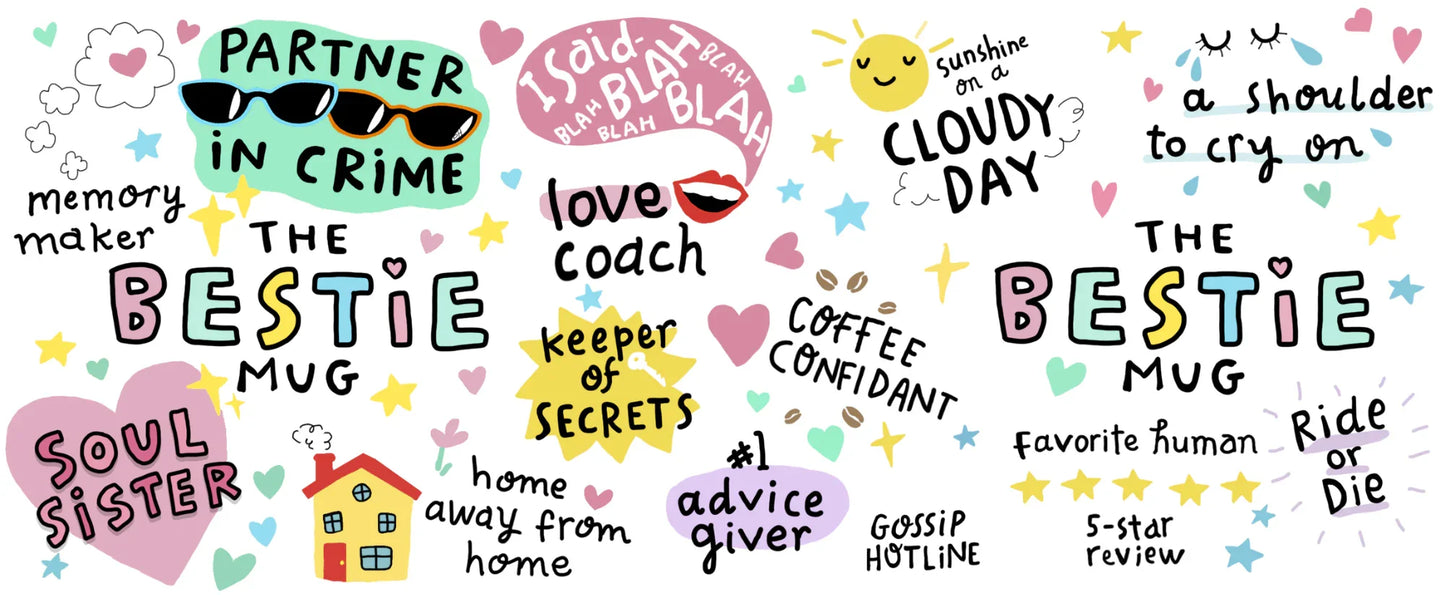 PARTNER
iN CRiME
memory
maker
THE
BESTiE
MUG
SOUL
SiSTER
home
away from
home
I Said-
BLAH
BLAH
BLAH
BLAH
BLAH
love
coach
keeper
of
SECRETS
#1
advice
giver
sunshine
on a
CLOUDY
DAY
COFFEE
CONFIDANT
GOSSiP
HOTLiNE
a shoulder
to cry on
THE
BESTiE
MUG
Favorite human
5-star
review
Ride
or
Die